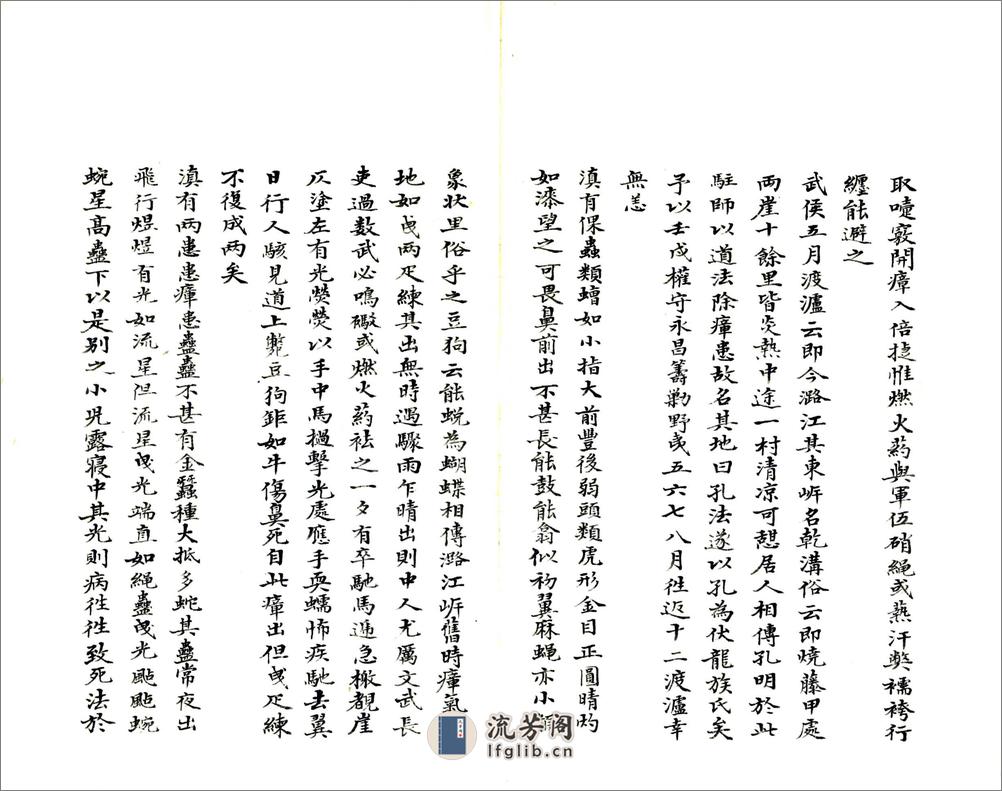 取嚏竅開瘴入倍捷惟燃火药與軍伍硝繩或爇汗獘襦袴行
纏能避之
武侯五月渡瀘云即今潞江其東岍名乾溝俗云即燒藤甲處
兩崖十餘里皆炎熱中途一村清凉可憩居人相傳孔明於此
駐師以道法除瘴患故名其地曰孔法遂以孔為伏龍族氏矣
予以壬戌權守永昌籌勦野曵五六七八月徃返十二渡瀘幸
無恙
滇有保蟲類螬如小指大前豊後弱頭類虎形金目正圓睛灼
如漆望之可畏鼻前出不甚長能鼓能翕似初翼麻蝇亦小
象状里俗乎之豆狗云能蜕為蝴蝶相傳潞江岍舊時瘴氣
地如曵两疋練其出無時遇驟雨乍晴出則中人尤厲文武長
吏過数武必鳴礮或燃火药袪之一夕有卒馳馬逓急檄覩崖
仄塗左有光熒熒以手中馬撾擊光處應手耎蠕怖疾馳去翼
日行人駭見道上斃豆狗鉅如牛傷鼻死自此瘴出但曵疋練
不復成两矣
滇有两患患瘴患蠱蠱不甚有金蠶種大抵多蛇其蠱常夜出
飛行熤熤有光如流星但流星曵光端直如繩蠱曵光颭颭蜿
蜿星高蠱下以是别之小児露寝中其光則病徃徃致死法於
流芳阁
lfglib.cn